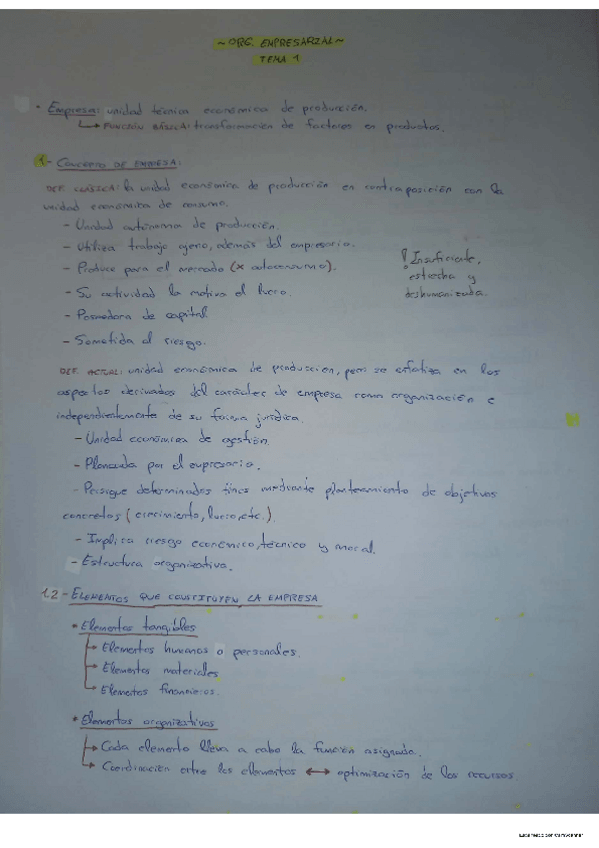 ~ORG. EMPRESARIAL~
TEMA 1
· Empresa: unidad técnica económica de producción.
↳ FUNCIÓN BÁSICA: transformación de factores en productos.
1.- CONCEPTO DE EMPRESA:
DEF. CLÁSICA: la unidad económica de producción en contraposición con la
unidad económica de consumo.
- Unidad autónoma de producción.
- Utiliza trabajo ajeno, además del empresario.
- Produce para el mercado (x autoconsumo).
- Su actividad la motiva el lucro.
- Poseedora de capital
- Sometida al riesgo.
! Insuficiente,
estrecha y
deshumanizada.
DEF. ACTUAL: unidad económica de producción, pero se enfatiza en los
aspectos derivados del carácter de empresa como organización e
independientemente de su forma jurídica.
- Unidad económica de gestión.
- Planeada por el empresario.
- Persigue determinados fines mediante planteamiento de objetivos
concretos (crecimiento, lucro, etc.).
- Implica riesgo económico, técnico y moral.
- Estructura organizativa.
1.2 - ELEMENTOS QUE CONSTITUYEN LA EMPRESA
• Elementos tangibles
→ Elementos humanos o personales.
→ Elementos materiales
→ Elementos financieros.
• Elementos organizativos
→ Cada elemento lleva a cabo la función asignada.
→ Coordinación entre los elementos ↔ optimización de los recursos